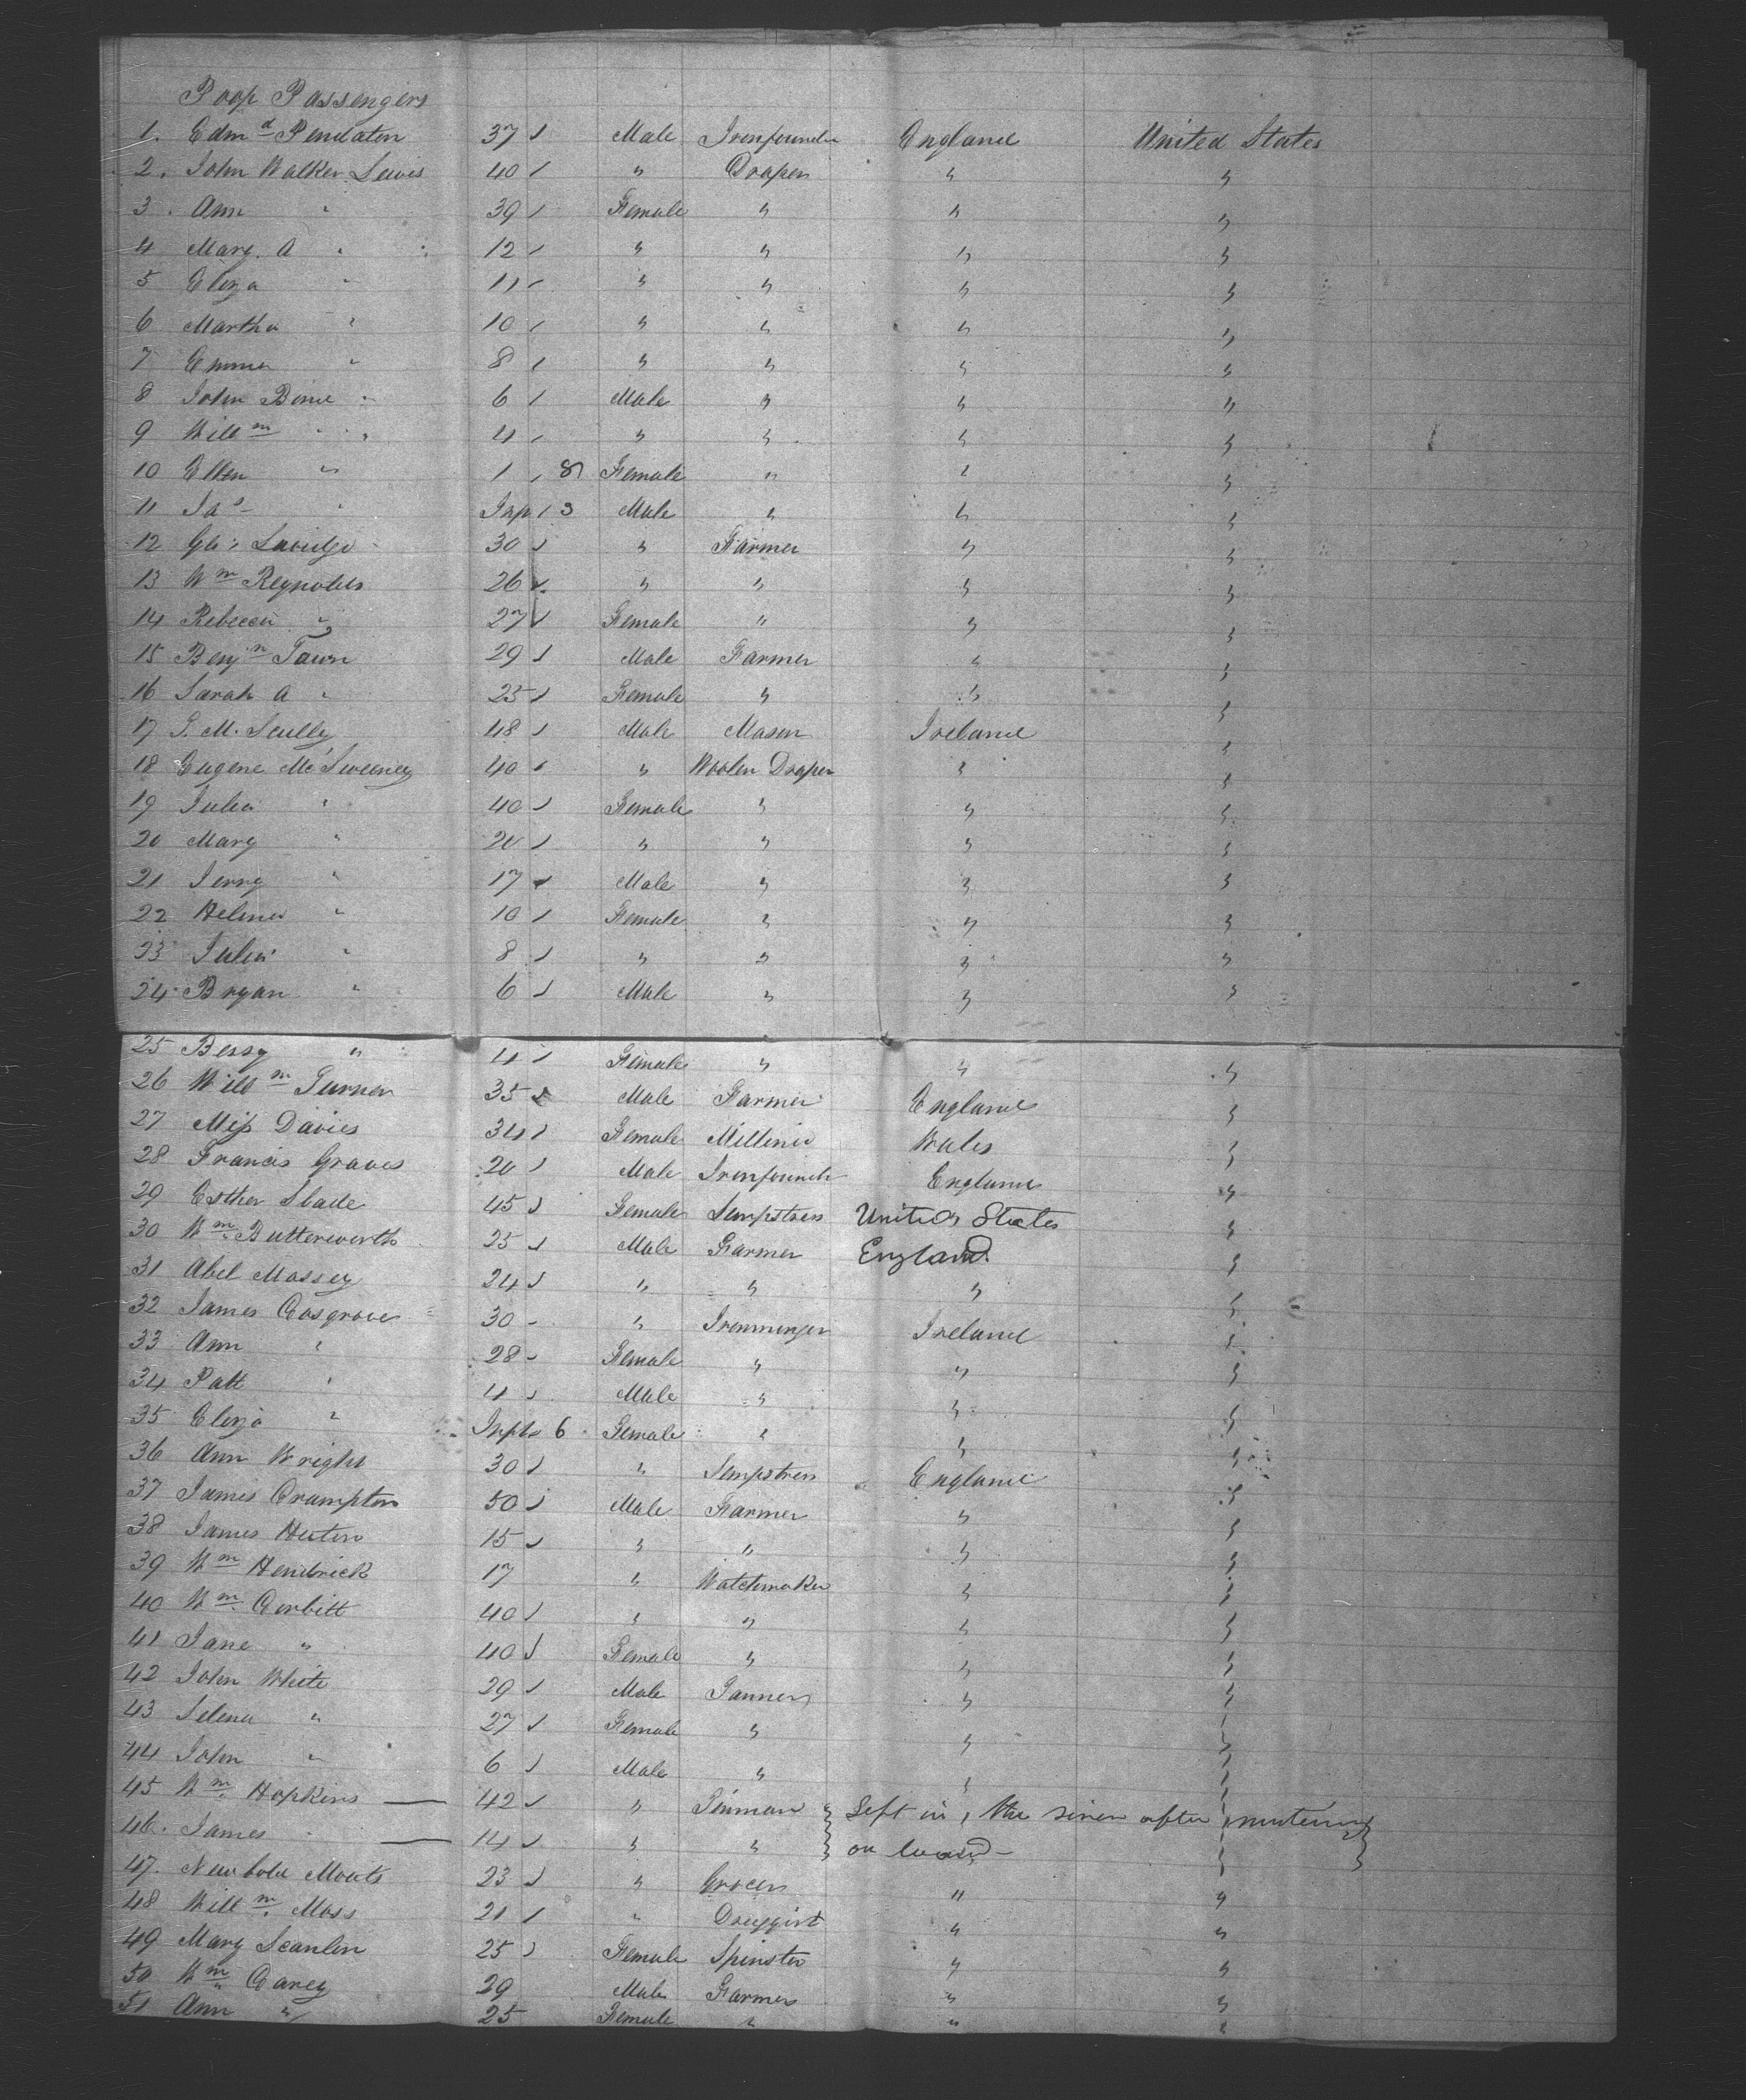 Poop Passengers
1. Edmd Pendaton 37 Male Ironfounder England United States
2. John Walker Lewis 40 " Draper " "
3. Ann " 39 Female " " "
4 Mary. A " 12 " " " "
5 Eliza " 11 " " " "
6 Martha " 10 " " " "
7 Emma " 8 " " " "
8 John Bime " 6 Male " " "
9 Willm " " 4 " " " "
10 Ellen " 1 8 Female " " "
11 Jas " Inft 3 Male " " "
12 Geo: 30 " Farmer " "
13 Wm Reynolds 26 " " " "
14 Rebecca " 27 Female " " "
15 Benjn Town 29 Male Farmer " "
16 Sarah A " 25 Female " " "
17 M. Scully 48 Male Mason Ireland "
18 Eugene McSweeney 40 " Woolen Draper " "
19 Julia " 40 Female " " "
20 Mary " 20 " " " "
21 Jerry " 17 Male " " "
22 Helena " 10 Female " " "
23 Julia " 8 " " " "
24 Bryan " 6 Male " " "
25 Bessy " 4 Female " " "
26 Willm Turner 35 Male Farmer England "
27 Miss Davies 34 Female Milliner Wales "
28 Francis Graves 20 Male Ironfounder England "
29 Esther Slade 45 Female Sempstress United States "
30 Wm Butterworth 25 Male Farmer England "
31 Abel Massey 24 " " " "
32 James Cosgrove 30 " Ironmonger Ireland "
33 Ann " 28 Female " " "
34 Patt " 4 Male " " "
35 Eliza " Inft 6 Female " " "
36 Ann Wright 30 " Sempstress England "
37 James Crampton 50 Male Farmer " "
38 James Heaton 15 " " " "
39 Wm Hendrick 17 " Watchmaker " "
40 Wm Corbitt 40 " " " "
41 Jane " 40 Female " " "
42 John White 29 Male Tanner " "
43 Selena " 27 Female " " "
44 John " 6 Male " " "
45 Wm Hopkins — 42 " Tinman } Left in the river after mustering
46. James " — 14 " " } on board —
47. Newbold Moats 23 " Grocer " "
48 Willm Moss 21 " Druggist " "
49 Mary Scanlon 25 Female Spinster " "
50 Wm Carey 29 Male Farmer " "
51 Ann " 25 Female " " "